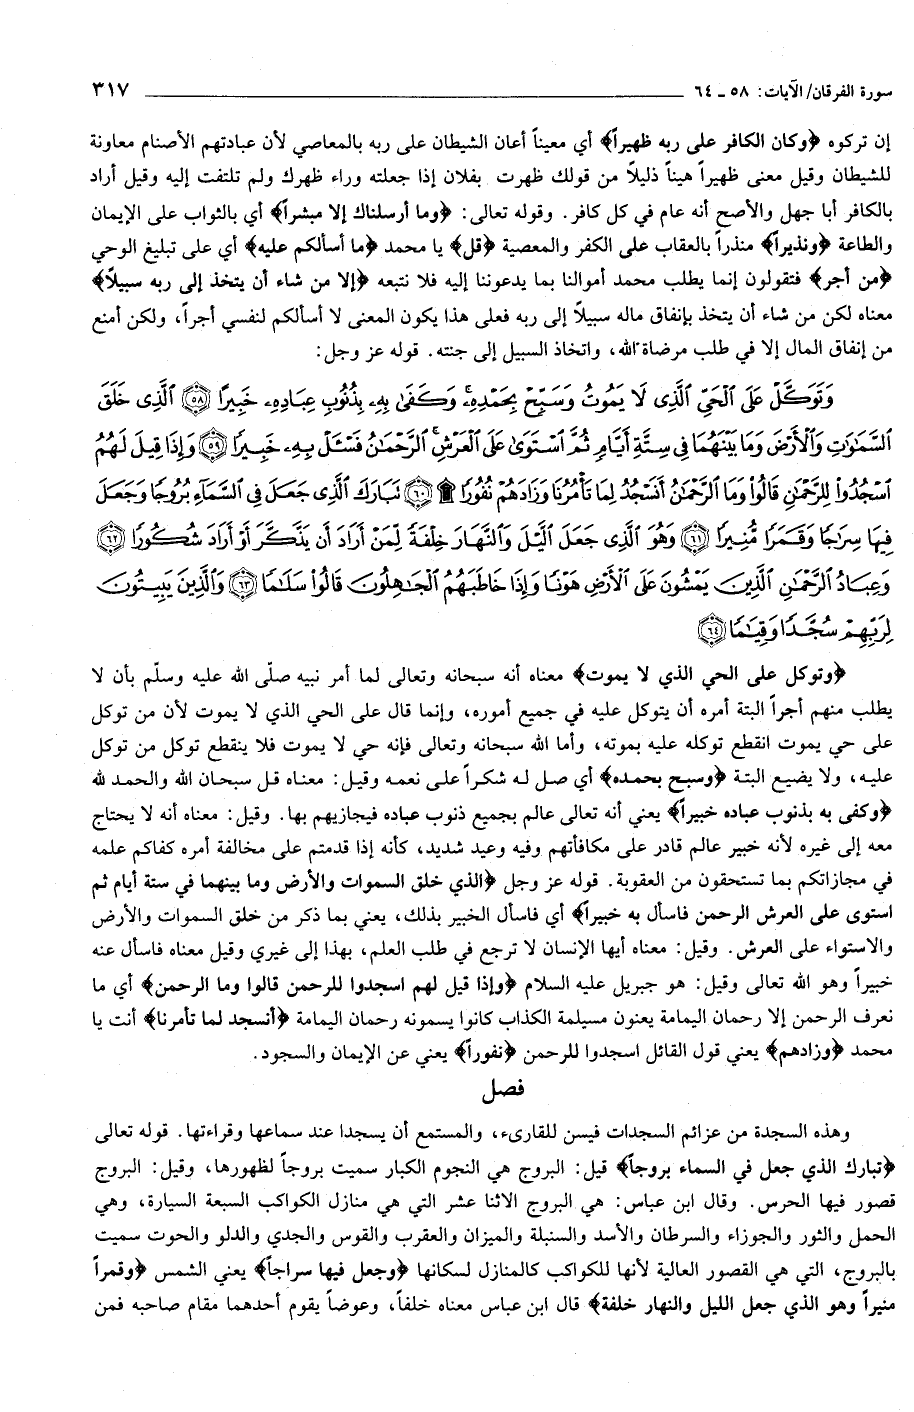 سورة الفرقان/ الآيات: ٥٨ ـ ٦٤ ٣١٧
إن تركوه ﴿وكان الكافر على ربه ظهيراً﴾ أي معيناً أعان الشيطان على ربه بالمعاصي لأن عبادتهم الأصنام معاونة
للشيطان وقيل معنى ظهيراً هيناً ذليلاً من قولك ظهرت بفلان إذا جعلته وراء ظهرك ولم تلتفت إليه وقيل أراد
بالكافر أبا جهل والأصح أنه عام في كل كافر. وقوله تعالى: ﴿وما أرسلناك إلا مبشراً﴾ أي بالثواب على الإيمان
والطاعة ﴿ونذيراً﴾ منذراً بالعقاب على الكفر والمعصية ﴿قل﴾ يا محمد ﴿ما أسألكم عليه﴾ أي على تبليغ الوحي
﴿من أجر﴾ فتقولون إنما يطلب محمد أموالنا بما يدعوننا إليه فلا نتبعه ﴿إلا من شاء أن يتخذ إلى ربه سبيلاً﴾
معناه لكن من شاء أن يتخذ بإنفاق ماله سبيلاً إلى ربه فعلى هذا يكون المعنى لا أسألكم لنفسي أجراً، ولكن أمنع
من إنفاق المال إلا في طلب مرضاة الله، واتخاذ السبيل إلى جنته. قوله عز وجل:
وَتَوَكَّلْ عَلَى ٱلْحَيِّ ٱلَّذِى لَا يَمُوتُ وَسَبِّحْ بِحَمْدِهِۦ ۚ وَكَفَىٰ بِهِۦ بِذُنُوبِ عِبَادِهِۦ خَبِيرًا ﴿٥٨﴾ ٱلَّذِى خَلَقَ
ٱلسَّمَٰوَٰتِ وَٱلْأَرْضَ وَمَا بَيْنَهُمَا فِى سِتَّةِ أَيَّامٍ ثُمَّ ٱسْتَوَىٰ عَلَى ٱلْعَرْشِ ۚ ٱلرَّحْمَٰنُ فَسْـَٔلْ بِهِۦ خَبِيرًا ﴿٥٩﴾ وَإِذَا قِيلَ لَهُمُ
ٱسْجُدُوا۟ لِلرَّحْمَٰنِ قَالُوا۟ وَمَا ٱلرَّحْمَٰنُ أَنَسْجُدُ لِمَا تَأْمُرُنَا وَزَادَهُمْ نُفُورًا ۩ ﴿٦٠﴾ تَبَارَكَ ٱلَّذِى جَعَلَ فِى ٱلسَّمَآءِ بُرُوجًا وَجَعَلَ
فِيهَا سِرَٰجًا وَقَمَرًا مُّنِيرًا ﴿٦١﴾ وَهُوَ ٱلَّذِى جَعَلَ ٱلَّيْلَ وَٱلنَّهَارَ خِلْفَةً لِّمَنْ أَرَادَ أَن يَذَّكَّرَ أَوْ أَرَادَ شُكُورًا ﴿٦٢﴾
وَعِبَادُ ٱلرَّحْمَٰنِ ٱلَّذِينَ يَمْشُونَ عَلَى ٱلْأَرْضِ هَوْنًا وَإِذَا خَاطَبَهُمُ ٱلْجَٰهِلُونَ قَالُوا۟ سَلَٰمًا ﴿٦٣﴾ وَٱلَّذِينَ يَبِيتُونَ
لِرَبِّهِمْ سُجَّدًا وَقِيَٰمًا ﴿٦٤﴾
﴿وتوكل على الحي الذي لا يموت﴾ معناه أنه سبحانه وتعالى لما أمر نبيه صلّى الله عليه وسلّم بأن لا
يطلب منهم أجراً البتة أمره أن يتوكل عليه في جميع أموره، وإنما قال على الحي الذي لا يموت لأن من توكل
على حي يموت انقطع توكله عليه بموته، وأما الله سبحانه وتعالى فإنه حي لا يموت فلا ينقطع توكل من توكل
عليه، ولا يضيع البتة ﴿وسبح بحمده﴾ أي صل له شكراً على نعمه وقيل: معناه قل سبحان الله والحمد لله
﴿وكفى به بذنوب عباده خبيراً﴾ يعني أنه تعالى عالم بجميع ذنوب عباده فيجازيهم بها. وقيل: معناه أنه لا يحتاج
معه إلى غيره لأنه خبير عالم قادر على مكافأتهم وفيه وعيد شديد، كأنه إذا قدمتم على مخالفة أمره كفاكم علمه
في مجازاتكم بما تستحقون من العقوبة. قوله عز وجل ﴿الذي خلق السموات والأرض وما بينهما في ستة أيام ثم
استوى على العرش الرحمن فاسأل به خبيراً﴾ أي فاسأل الخبير بذلك، يعني بما ذكر من خلق السموات والأرض
والاستواء على العرش. وقيل: معناه أيها الإنسان لا ترجع في طلب العلم، بهذا إلى غيري وقيل معناه فاسأل عنه
خبيراً وهو الله تعالى وقيل: هو جبريل عليه السلام ﴿وإذا قيل لهم اسجدوا للرحمن قالوا وما الرحمن﴾ أي ما
نعرف الرحمن إلا رحمان اليمامة يعنون مسيلمة الكذاب كانوا يسمونه رحمان اليمامة ﴿أنسجد لما تأمرنا﴾ أنت يا
محمد ﴿وزادهم﴾ يعني قول القائل اسجدوا للرحمن ﴿نفوراً﴾ يعني عن الإيمان والسجود.
فصل
وهذه السجدة من عزائم السجدات فيسن للقارىء، والمستمع أن يسجدا عند سماعها وقراءتها. قوله تعالى
﴿تبارك الذي جعل في السماء بروجاً﴾ قيل: البروج هي النجوم الكبار سميت بروجاً لظهورها، وقيل: البروج
قصور فيها الحرس. وقال ابن عباس: هي البروج الاثنا عشر التي هي منازل الكواكب السبعة السيارة، وهي
الحمل والثور والجوزاء والسرطان والأسد والسنبلة والميزان والعقرب والقوس والجدي والدلو والحوت سميت
بالبروج، التي هي القصور العالية لأنها للكواكب كالمنازل لسكانها ﴿وجعل فيها سراجاً﴾ يعني الشمس ﴿وقمراً
منيراً وهو الذي جعل الليل والنهار خلفة﴾ قال ابن عباس معناه خلفاً، وعوضاً يقوم أحدهما مقام صاحبه فمن